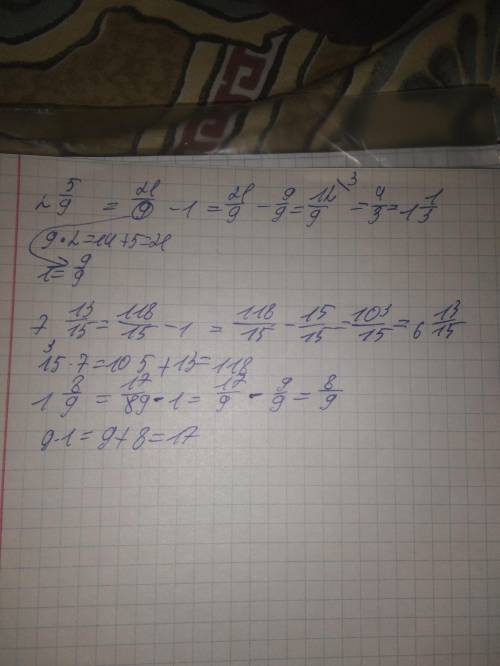 2 5/9 = 21/9 - 1 = 21/9 - 9/9 = 12/9 \3 = 4/3 = 1 1/3
9·2=14+5=21
1= 9/9
7 13/15 = 118/15 - 1 = 118/15 - 15/15 = 103/15 = 6 13/15
3
15·7=105+13=118
1 8/9 = 17/89 - 1 = 17/9 - 9/9 = 8/9
9·1=9+8=17